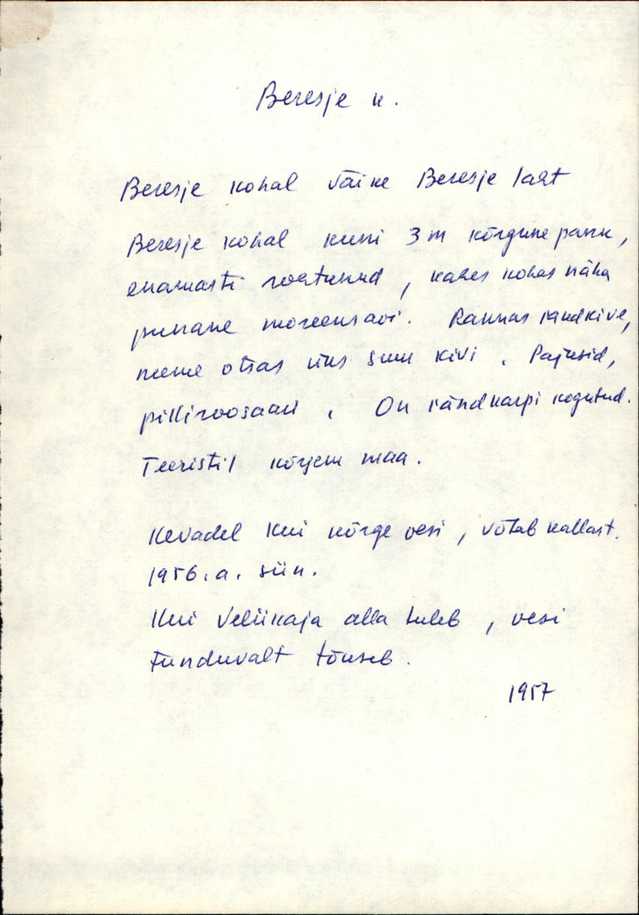 Beresje k.
Beresje kohal väike Beresje laht
Beresje kohal kuni 3 m kõrgune pank,
enamasti roostunud, kahes kohas näha
punane moreensavi. Rannas rändkive,
neeme otsas üks suur kivi. Pajusid,
pilliroosaari. On rändkarpi kogutud.
Teeristil kõrgem maa.
Kevadel kui kõrge vesi, võtab kallast.
1956.a. siin.
Kui Velikaja alla tuleb, vesi
tunduvalt tõuseb.
1957